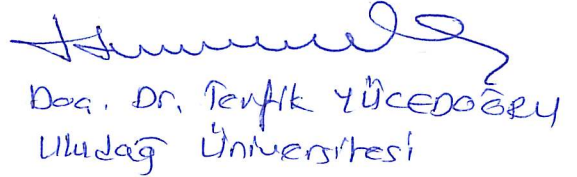 Doç. Dr. Tevfik YÜCEDOĞRU
Uludağ Üniversitesi